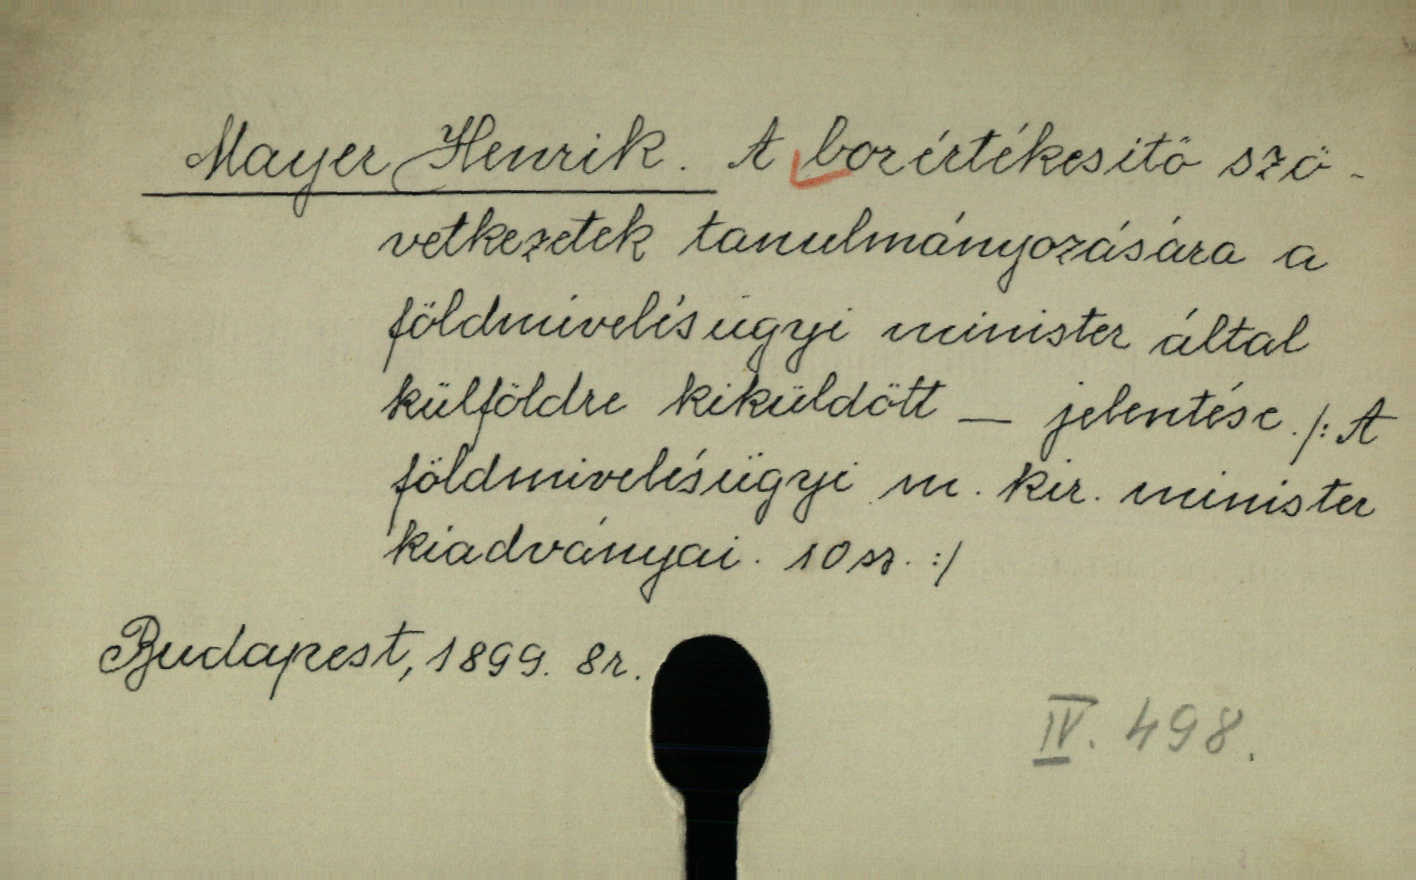 Mayer Henrik. A borértékesitö szö-
vetkezetek tanulmányozására a
földmivelésügyi minister által
külföldre kiküldött — jelentése. /: A
földmivelésügyi m. kir. minister
kiadványai. 10 sz. :/
Budapest, 1899. 8r.
IV. 498.